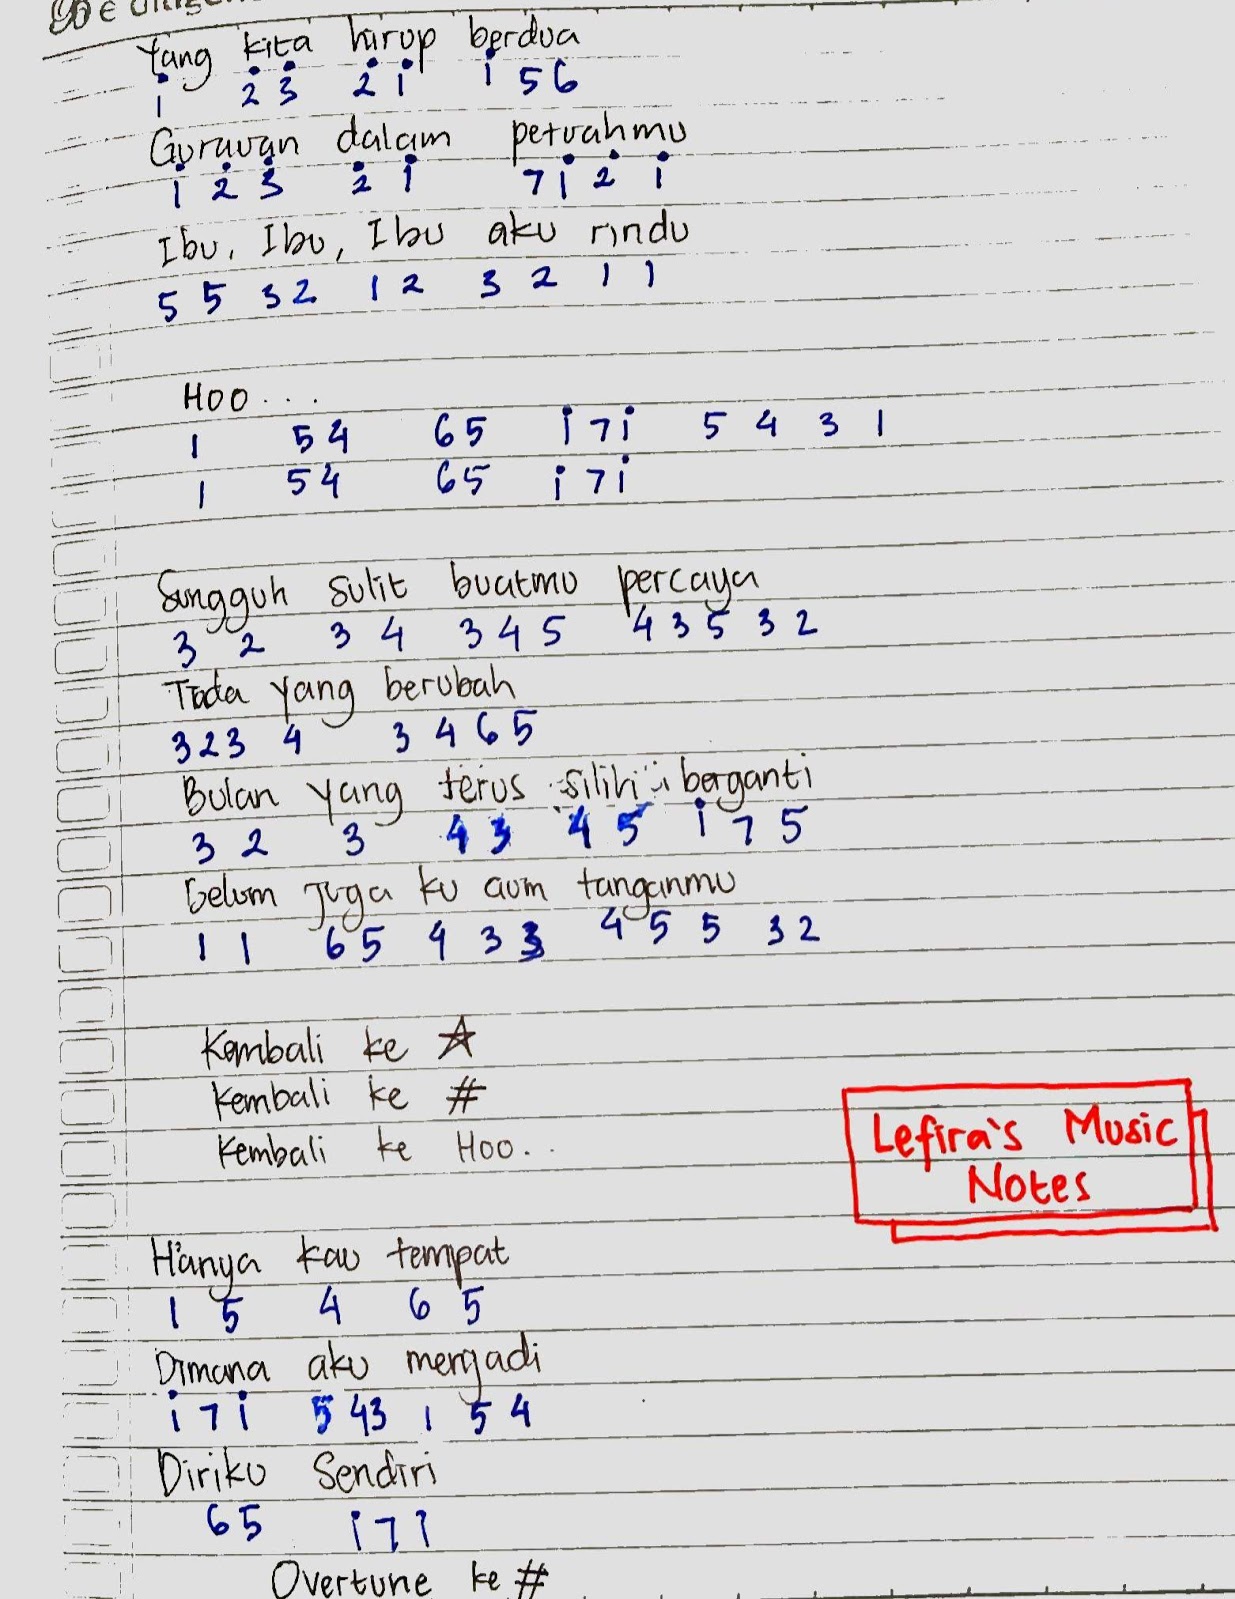 Yang kita hirup berdua
i̇ 2̇ 3̇ 2̇ i̇ i̇ 5 6
Gurauan dalam petuahmu
i̇ 2̇ 3̇ 2̇ i̇ 7 i̇ 2̇ i̇
Ibu, Ibu, Ibu aku rindu
5 5 3 2 1 2 3 2 1 1
Hoo ...
1 54 65 i̇ 7 i̇ 5 4 3 1
1 54 65 i̇ 7 i̇
Sungguh sulit buatmu percaya
3 2 3 4 3 4 5 4 3 5 3 2
Tiada yang berubah
323 4 3 4 6 5
Bulan yang terus silih berganti
3 2 3 4 3 4 5 i̇ 7 5
Belum juga ku cium tanganmu
1 1 6 5 4 3 3 4 5 5 3 2
Kembali ke ☆
Kembali ke #
Kembali ke Hoo...
Lefira's Music
Notes
Hanya kau tempat
1 5 4 6 5
Dimana aku menjadi
i̇ 7 i̇ 5 43 1 5 4
Diriku Sendiri
6 5 i̇ 7 i̇
Overtune ke #